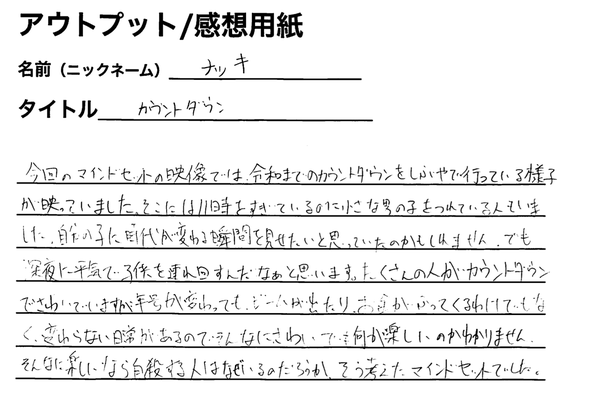 アウトプット/感想用紙
名前（ニックネーム） ナッキ
タイトル カウントダウン
今回のマインドセットの映像では、令和までのカウントダウンをしぶやで行っている様子
が映っていました。そこには11時をすぎているのに小さな男の子をつれている人もいま
した。自分の子に時代が変わる瞬間を見せたいと思っていたのかもしれません。でも
深夜に平気で子供を連れ回すんだなぁと思います。たくさんの人がカウントダウン
でさわいでいますが年号が変わっても、ゲームが出たり、お金がふってくるわけでもな
く、変わらない日常があるのでそんなにさわいでも何が楽しいのかわかりません。
そんなに楽しいなら自殺する人はなぜいるのだろうか、そう考えたマインドセットでした。